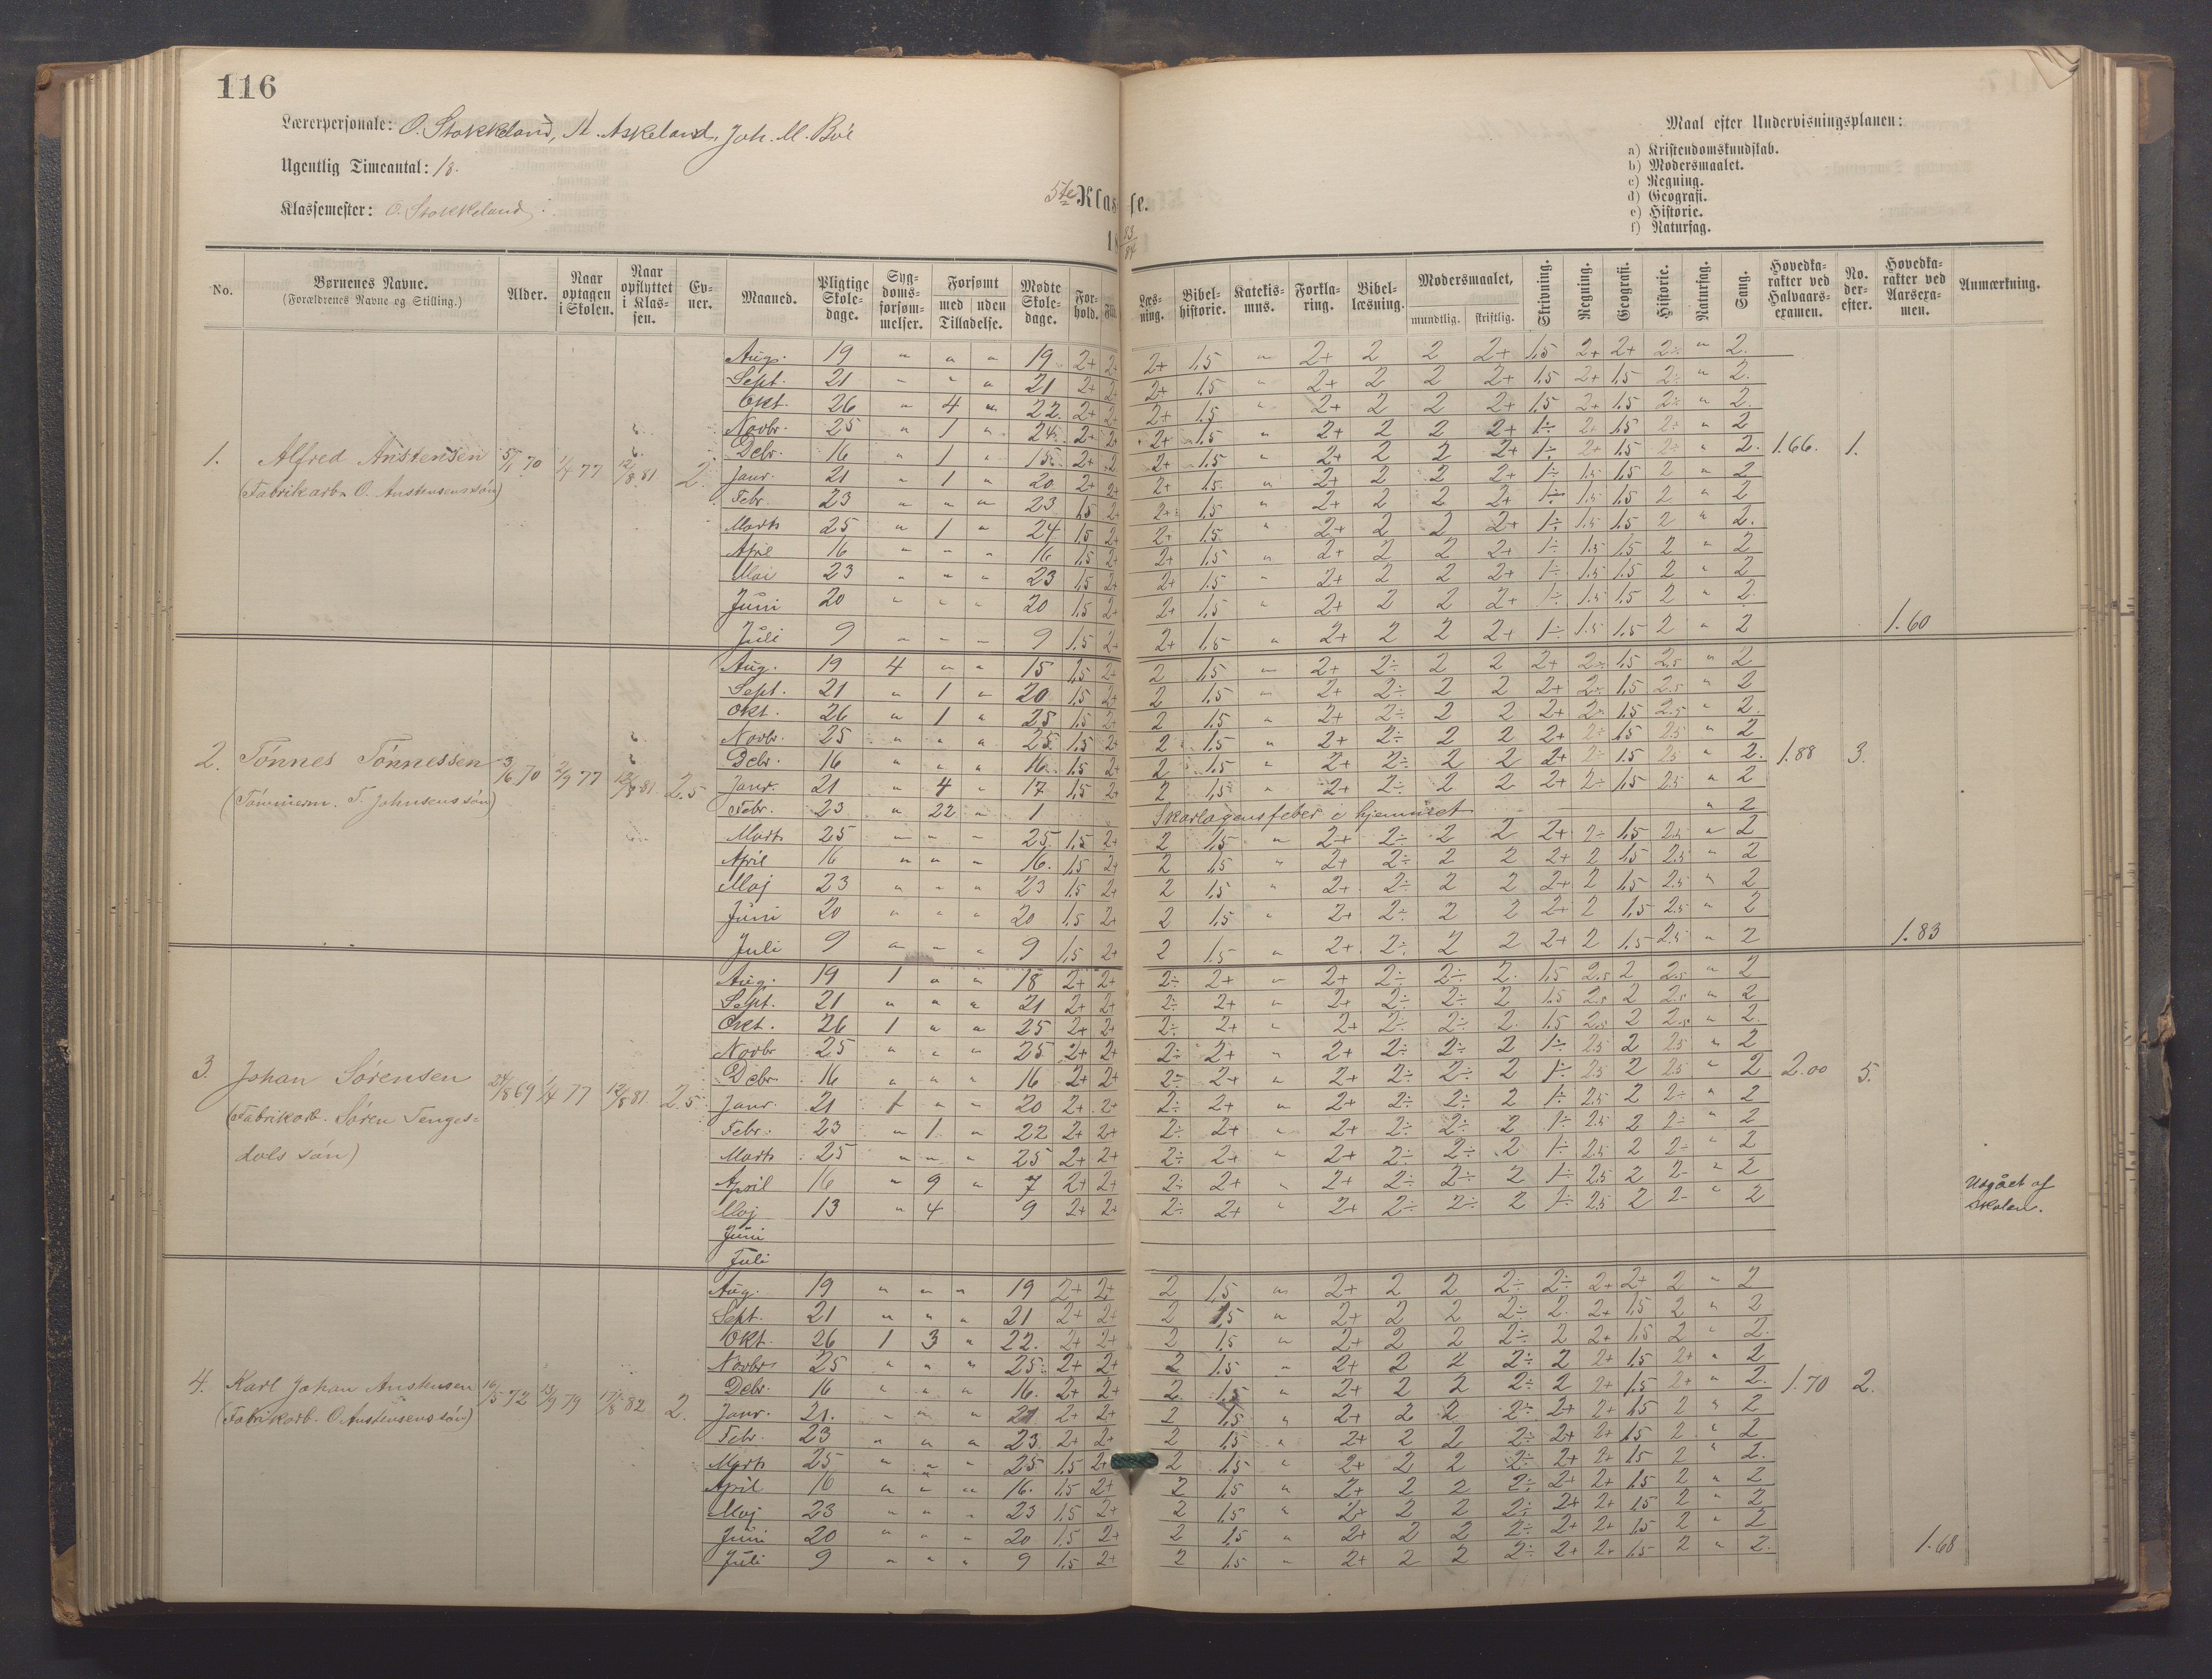 116
Lærerpersonale: O. Stokkeland, N. Askeland, Joh. M. Bøe
Ugentlig Timeantal: 18.
Klassemester: O. Stokkeland.
5te Klasse.
18 83/84
Maal efter Undervisningsplanen:
a) Kristendomskundskab.
b) Modersmaalet.
c) Regning.
d) Geografi.
e) Historie.
f) Naturfag.
No. Børnenes Navne. (Forældrenes Navne og Stilling.) Alder. Naar optagen i Skolen. Naar opflyttet i Klassen. Evner. Maaned. Pligtige Skoledage. Sygdomsforsømmelser. Forsømt med uden Tilladelse. Mødte Skoledage. Forhold. Flid. Læsning. Bibelhistorie. Katekismus. Forklaring. Bibellæsning. Modersmaalet, mundtlig. skriftlig. Skrivning. Regning. Geografi. Historie. Naturfag. Sang. Hovedkarakter ved Halvaarsexamen. No. derefter. Hovedkarakter ved Aarsexamen. Anmærkning.
1. Alfred Anstensen 5/1 70 1/4 77 12/8 81 2. 1.66. 1. 1.60
(Fabrikarb. O. Anstensens søn)
Aug. 19 " " " 19 2+ 2+ 2+ 1,5 " 2+ 2 2 2+ 1,5 2+ 2+ 2÷ " 2.
Sept. 21 " " " 21 2+ 2+ 2+ 1,5 " 2+ 2 2 2+ 1,5 2+ 1,5 2÷ " 2.
Okt. 26 " 4 " 22. 2+ 2+ 2+ 1,5 " 2+ 2 2 2+ 1,5 2+ 1,5 2÷ " 2.
Novbr. 25 " 1 " 24. 2+ 2+ 2+ 1,5 " 2+ 2 2 2+ 1÷ 2+ 1,5 2÷ " 2
Debr. 16 " 1 " 15. 2+ 2 2+ 1,5 " 2+ 2 2 2+ 1÷ 2+ 1,5 2÷ " 2.
Janr. 21 " 1 " 20 2+ 2+ 2+ 1,5 " 2+ 2 2 2+ 1÷ 1,5 1,5 2 " 2
Febr. 23 " " " 23 1,5 2+ 2+ 1,5 " 2+ 2 2 2+ 1÷ 1,5 1,5 2 " 2
Marts 25 " 1 " 24 1,5 2+ 2+ 1,5 " 2+ 2 2 2+ 1÷ 1,5 1,5 2 " 2.
April 16 " " " 16 1,5 2+ 2+ 1,5 " 2+ 2 2 2+ 1÷ 1,5 1,5 2 " 2
Mai 23 " " " 23 1,5 2+ 2+ 1,5 " 2+ 2 2 2+ 1÷ 1,5 1,5 2 " 2
Juni 20 " " " 20 1,5 2+ 2+ 1,5 " 2+ 2 2 2+ 1÷ 1,5 1,5 2 " 2.
Juli 9 " " " 9 1,5 2+ 2+ 1,5 " 2+ 2 2 2+ 1÷ 1,5 1,5 2 " 2
2. Tønnes Tønnessen 3/6 70 2/9 77 12/8 81. 2.5 1.88 3. 1.83
(Tømmerm. T. Johnsens søn)
Aug. 19 4 " " 15 1,5 2+ 2 1,5 " 2+ 2÷ 2 2 2+ 2÷ 1,5 2,5 " 2
Sept. 21 " 1 " 20 1,5 2+ 2 1,5 " 2+ 2÷ 2 2 2+ 2÷ 1,5 2.5 " 2
Okt. 26 " 1 " 25 1,5 2+ 2 1,5 " 2+ 2÷ 2 2 2+ 2÷ 1,5 2.5 " 2.
Novbr. 25 " " " 25. 1,5 2+ 2 1,5 " 2+ 2÷ 2 2 2+ 2÷ 1,5 2.5 " 2
Debr. 16 " " " 16. 1,5 2+ 2 1,5 " 2+ 2÷ 2 2 2+ 2÷ 1.5 2.5 " 2.
Janr. 21 " 4 " 17 1,5 2+ 2 1,5 " 2+ 2÷ 2 2 2+ 2÷ 1,5 2.5 " 2
Febr. 23 " 22 " 1 Skarlagensfeber i hjemmet " 2
Marts 25 " " " 25. 1,5 2+ 2 1,5 " 2+ 2÷ 2 2 2+ 2÷ 1,5 2.5 " 2
April 16 " " " 16. 1,5 2+ 2 1,5 " 2+ 2÷ 2 2 2+ 2 1,5 2.5 " 2
Maj 23 " " " 23 1,5 2+ 2 1,5 " 2+ 2÷ 2 2 2+ 2 1,5 2.5 " 2
Juni 20 " " " 20 1,5 2+ 2 1,5 " 2+ 2÷ 2 2 2+ 2 1,5 2.5 " 2
Juli 9 " " " 9 1,5 2+ 2 1,5 " 2+ 2÷ 2 2 2+ 2 1,5 2.5 " 2
3. Johan Sørensen 24/8 69 1/4 77 12/8 81. 2.5 2.00 5.
(Fabrikarb. Søren Tenges=
dals søn)
Aug. 19 1 " " 18 2+ 2+ 2÷ 2+ " 2+ 2÷ 2÷ 2. 1,5 2.5 2 2.5 " 2
Sept. 21 " " " 21 2+ 2+ 2÷ 2+ " 2+ 2÷ 2÷ 2 1,5 2.5 2 2.5 " 2
Okt. 26 1 " " 25 2+ 2+ 2÷ 2+ " 2+ 2÷ 2÷ 2. 1,5 2.5 2 2.5 " 2.
Novbr 25 " " " 25 2+ 2+ 2÷ 2+ " 2+ 2÷ 2÷ 2 1÷ 2.5 2 2.5 " 2
Debr. 16 " " " 16 2+ 2+ 2÷ 2+ " 2+ 2÷ 2÷ 2 1÷ 2.5 2 2.5 " 2
Janr. 21 1 " " 20 2+ 2+ 2÷ 2+ " 2+ 2÷ 2÷ 2 1÷ 2.5 2 2÷ " 2
Febr. 23 " 1 " 22 2+ 2+ 2÷ 2+ " 2+ 2÷ 2÷ 2 1÷ 2.5 2 2÷ " 2
Marts 25 " " " 25 2+ 2+ 2÷ 2+ " 2+ 2÷ 2÷ 2 1÷ 2.5 2 2÷ " 2
April 16 " 9 " 7 2+ 2+ 2÷ 2+ " 2+ 2÷ 2÷ 2 1÷ 2.5 2 2÷ " 2
Maj 13 " 4 9 2+ 2+ 2÷ 2+ " 2+ 2÷ 2÷ 2 1÷ 2.5 2 2÷ " 2
Udgået af
skolen.
Juni
Juli
4. Karl Johan Anstensen 16/5 72 13/9 79 17/8 82 2. 1.70 2. 1.68
(Fabrikarb. O Anstensens søn)
Aug. 19 " " " 19 2+ 2+ 2 1,5 " 2+ 2 2 2÷ 2÷ 2+ 2+ 2 " 2
Sept. 21 " " " 21 2+ 2+ 2 1,5 " 2+ 2 2 2÷ 2. 2+ 1,5 2 " 2
Okt. 26 1 3 " 22. 2+ 2+ 2 1,5 " 2+ 2 2 2÷ 2 2+ 1,5 2 " 2.
Novbr 25 " " " 25 2+ 2+ 2 1,5 " 2+ 2 2 2÷ 2 2+ 1,5 2+ " 2
Debr. 16 " " " 16. 2+ 2+ 2 1,5 " 2+ 2 2 2÷ 2 2+ 1,5 2+ " 2.
Janr. 21. " " " 21 2+ 2+ 2 1,5 " 2+ 2 2 2÷ 2+ 2+ 1,5 2 " 2
Febr. 23 " " " 23 2+ 2+ 2 1,5 " 2+ 2 2 2÷ 2+ 2+ 1,5 2 " 2
Marts 25 " " " 25 1,5 2+ 2 1,5 " 2+ 2 2 2÷ 2+ 2+ 1,5 2 " 2.
April 16 " " " 16. 1,5 2+ 2 1,5 " 2+ 2 2 2÷ 2+ 2+ 1,5 2 " 2
Maj 23 " " " 23 1,5 2+ 2 1,5 " 2+ 2 2 2÷ 2+ 2+ 1,5 2 " 2
Juni 20 " " " 20 1,5 2+ 2 1,5 " 2+ 2 2 2÷ 2+ 2+ 1,5 2 " 2
Juli 9 " " " 9 1,5 2+ 2 1,5 " 2+ 2 2 2÷ 2+ 2+ 1,5 2 " 2.